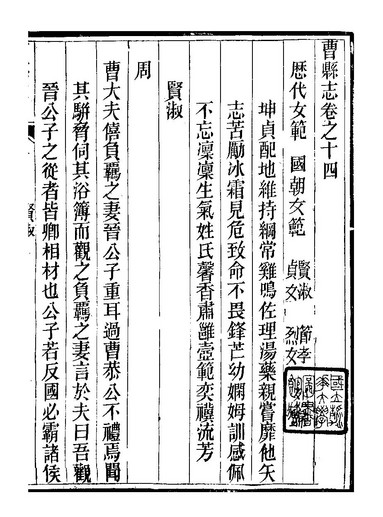 曹縣志卷之十四
歷代女範 國朝女範 賢淑 節孝 貞女 烈女
坤貞配地維持綱常雞鳴佐理湯藥親嘗靡他矢
志苦勵冰霜見危致命不畏鋒芒幼嫻姆訓感佩
不忘凜凜生氣姓氏馨香肅雝壼範奕禩流芳
賢淑
周
曹大夫僖負羈之妻晉公子重耳過曹恭公不禮焉聞
其駢脅伺其浴簿而觀之負羈之妻言於夫曰吾觀
晉公子之從者皆卿相材也公子若反國必霸諸侯
賢淑